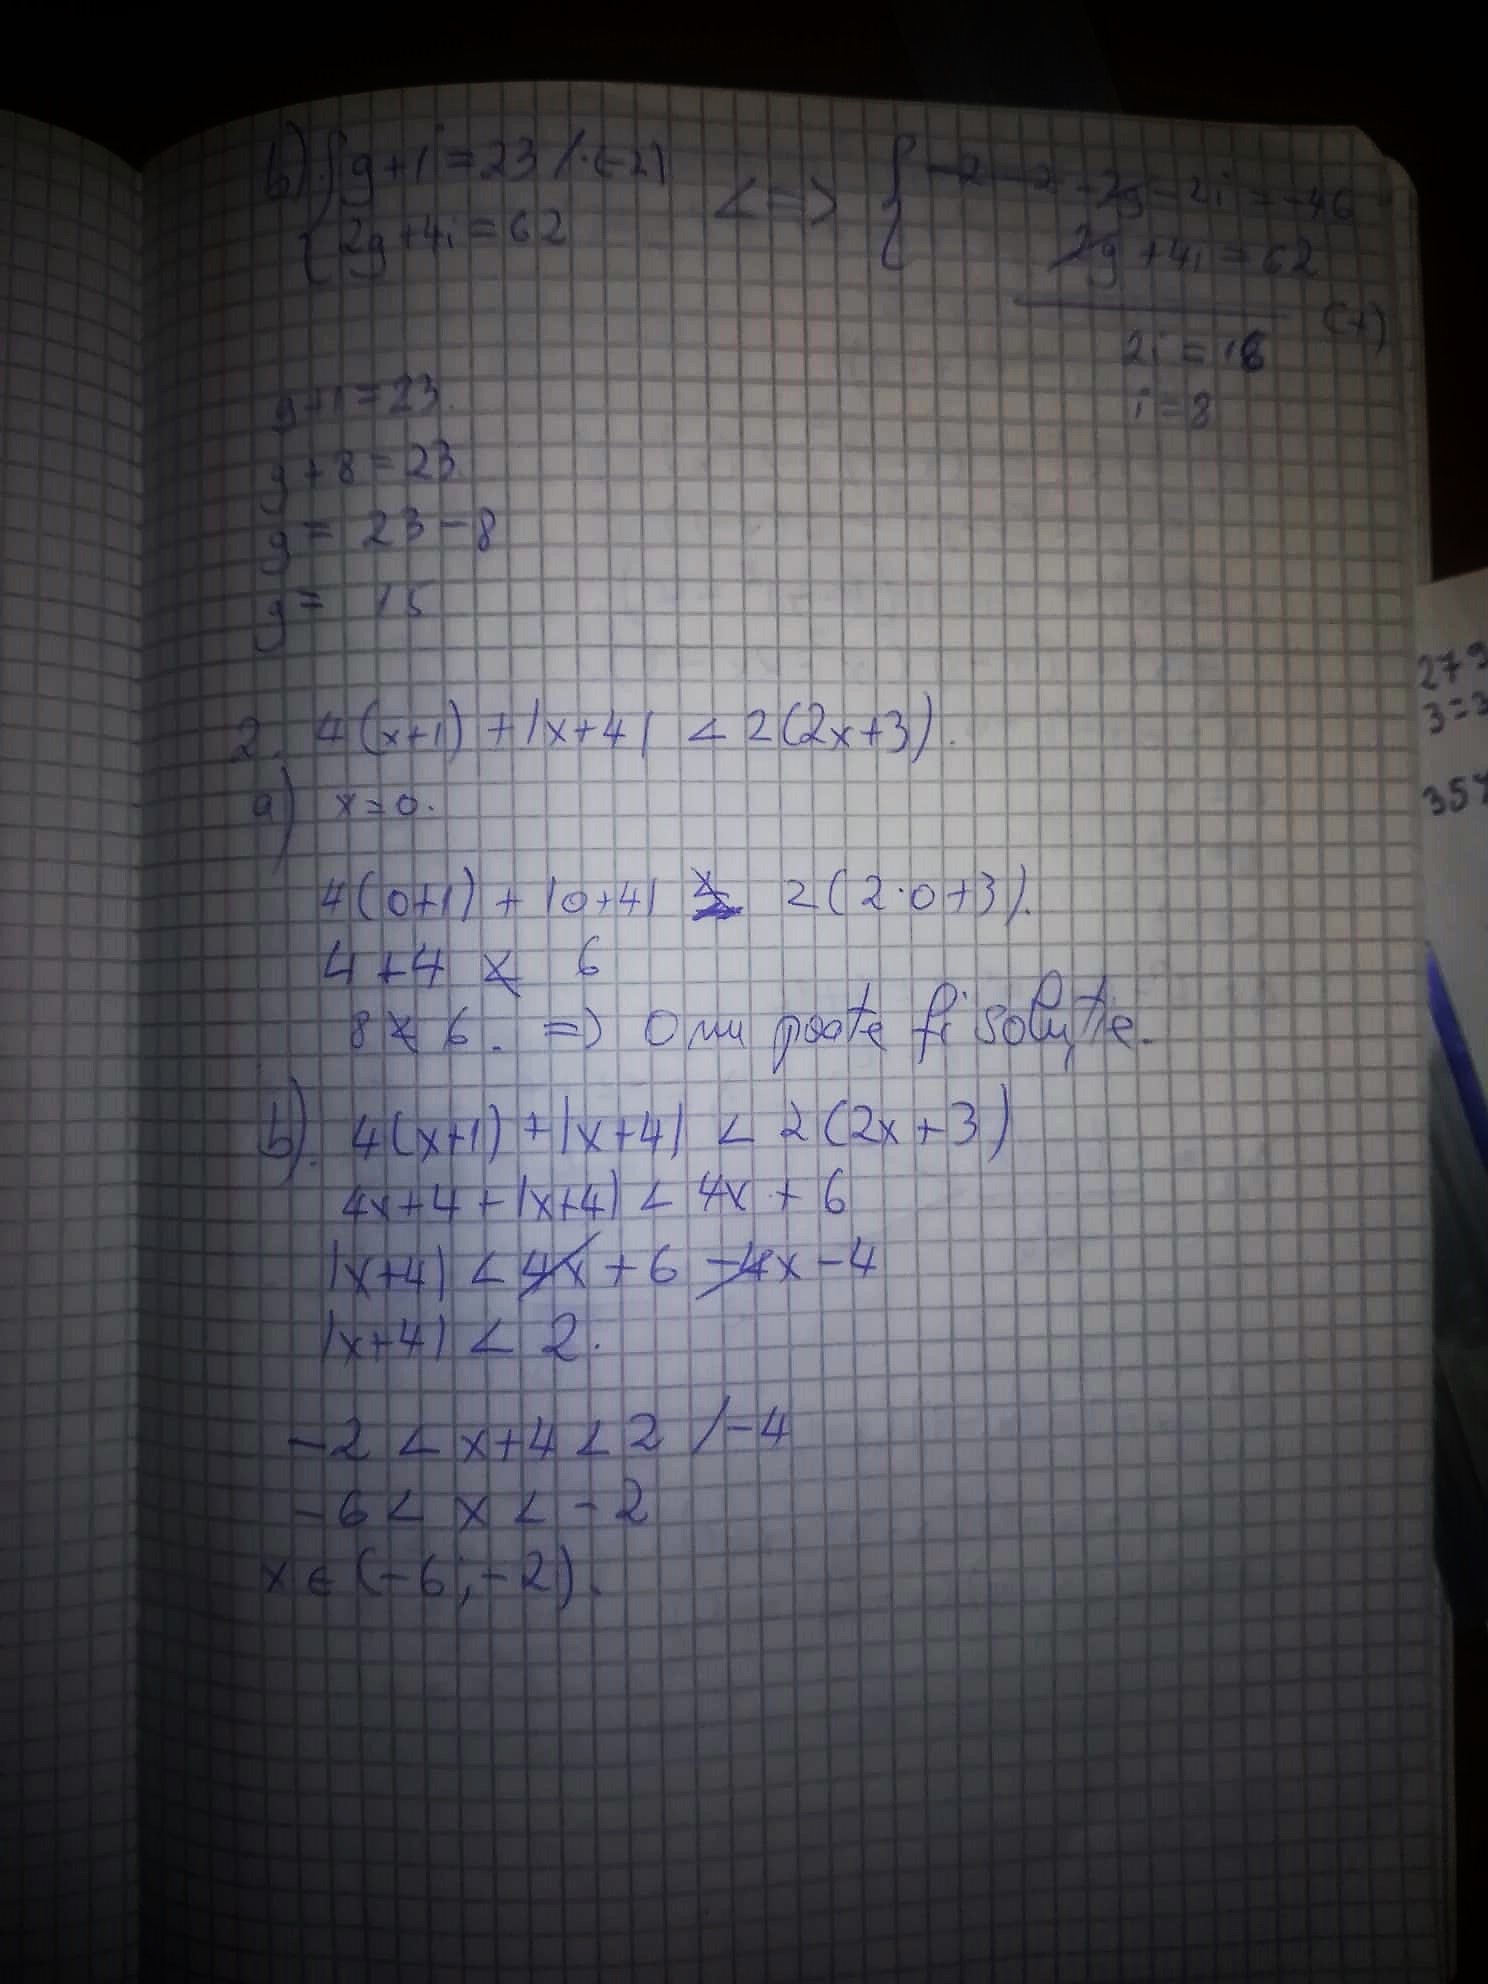 b) { g+i=23 /·(-2) <=> { -2g-2i=-46
2g+4i=62 2g+4i=62
(+)
2i=16
i=8
g+i=23.
g+8=23
g= 23-8
g= 15
2. 4(x+1)+|x+4| < 2(2x+3).
a) x=0.
4(0+1)+|0+4| 2(2·0+3).
4+4 ≮ 6
8 ≮ 6. => 0 nu poate fi soluție.
b). 4(x+1)+|x+4| < 2(2x+3)
4x+4+|x+4| < 4x+6
|x+4| < 4x+6-4x-4
|x+4| < 2.
-2 < x+4 < 2 /-4
-6 < x < -2
x∈(-6;-2).
279
3=3
357